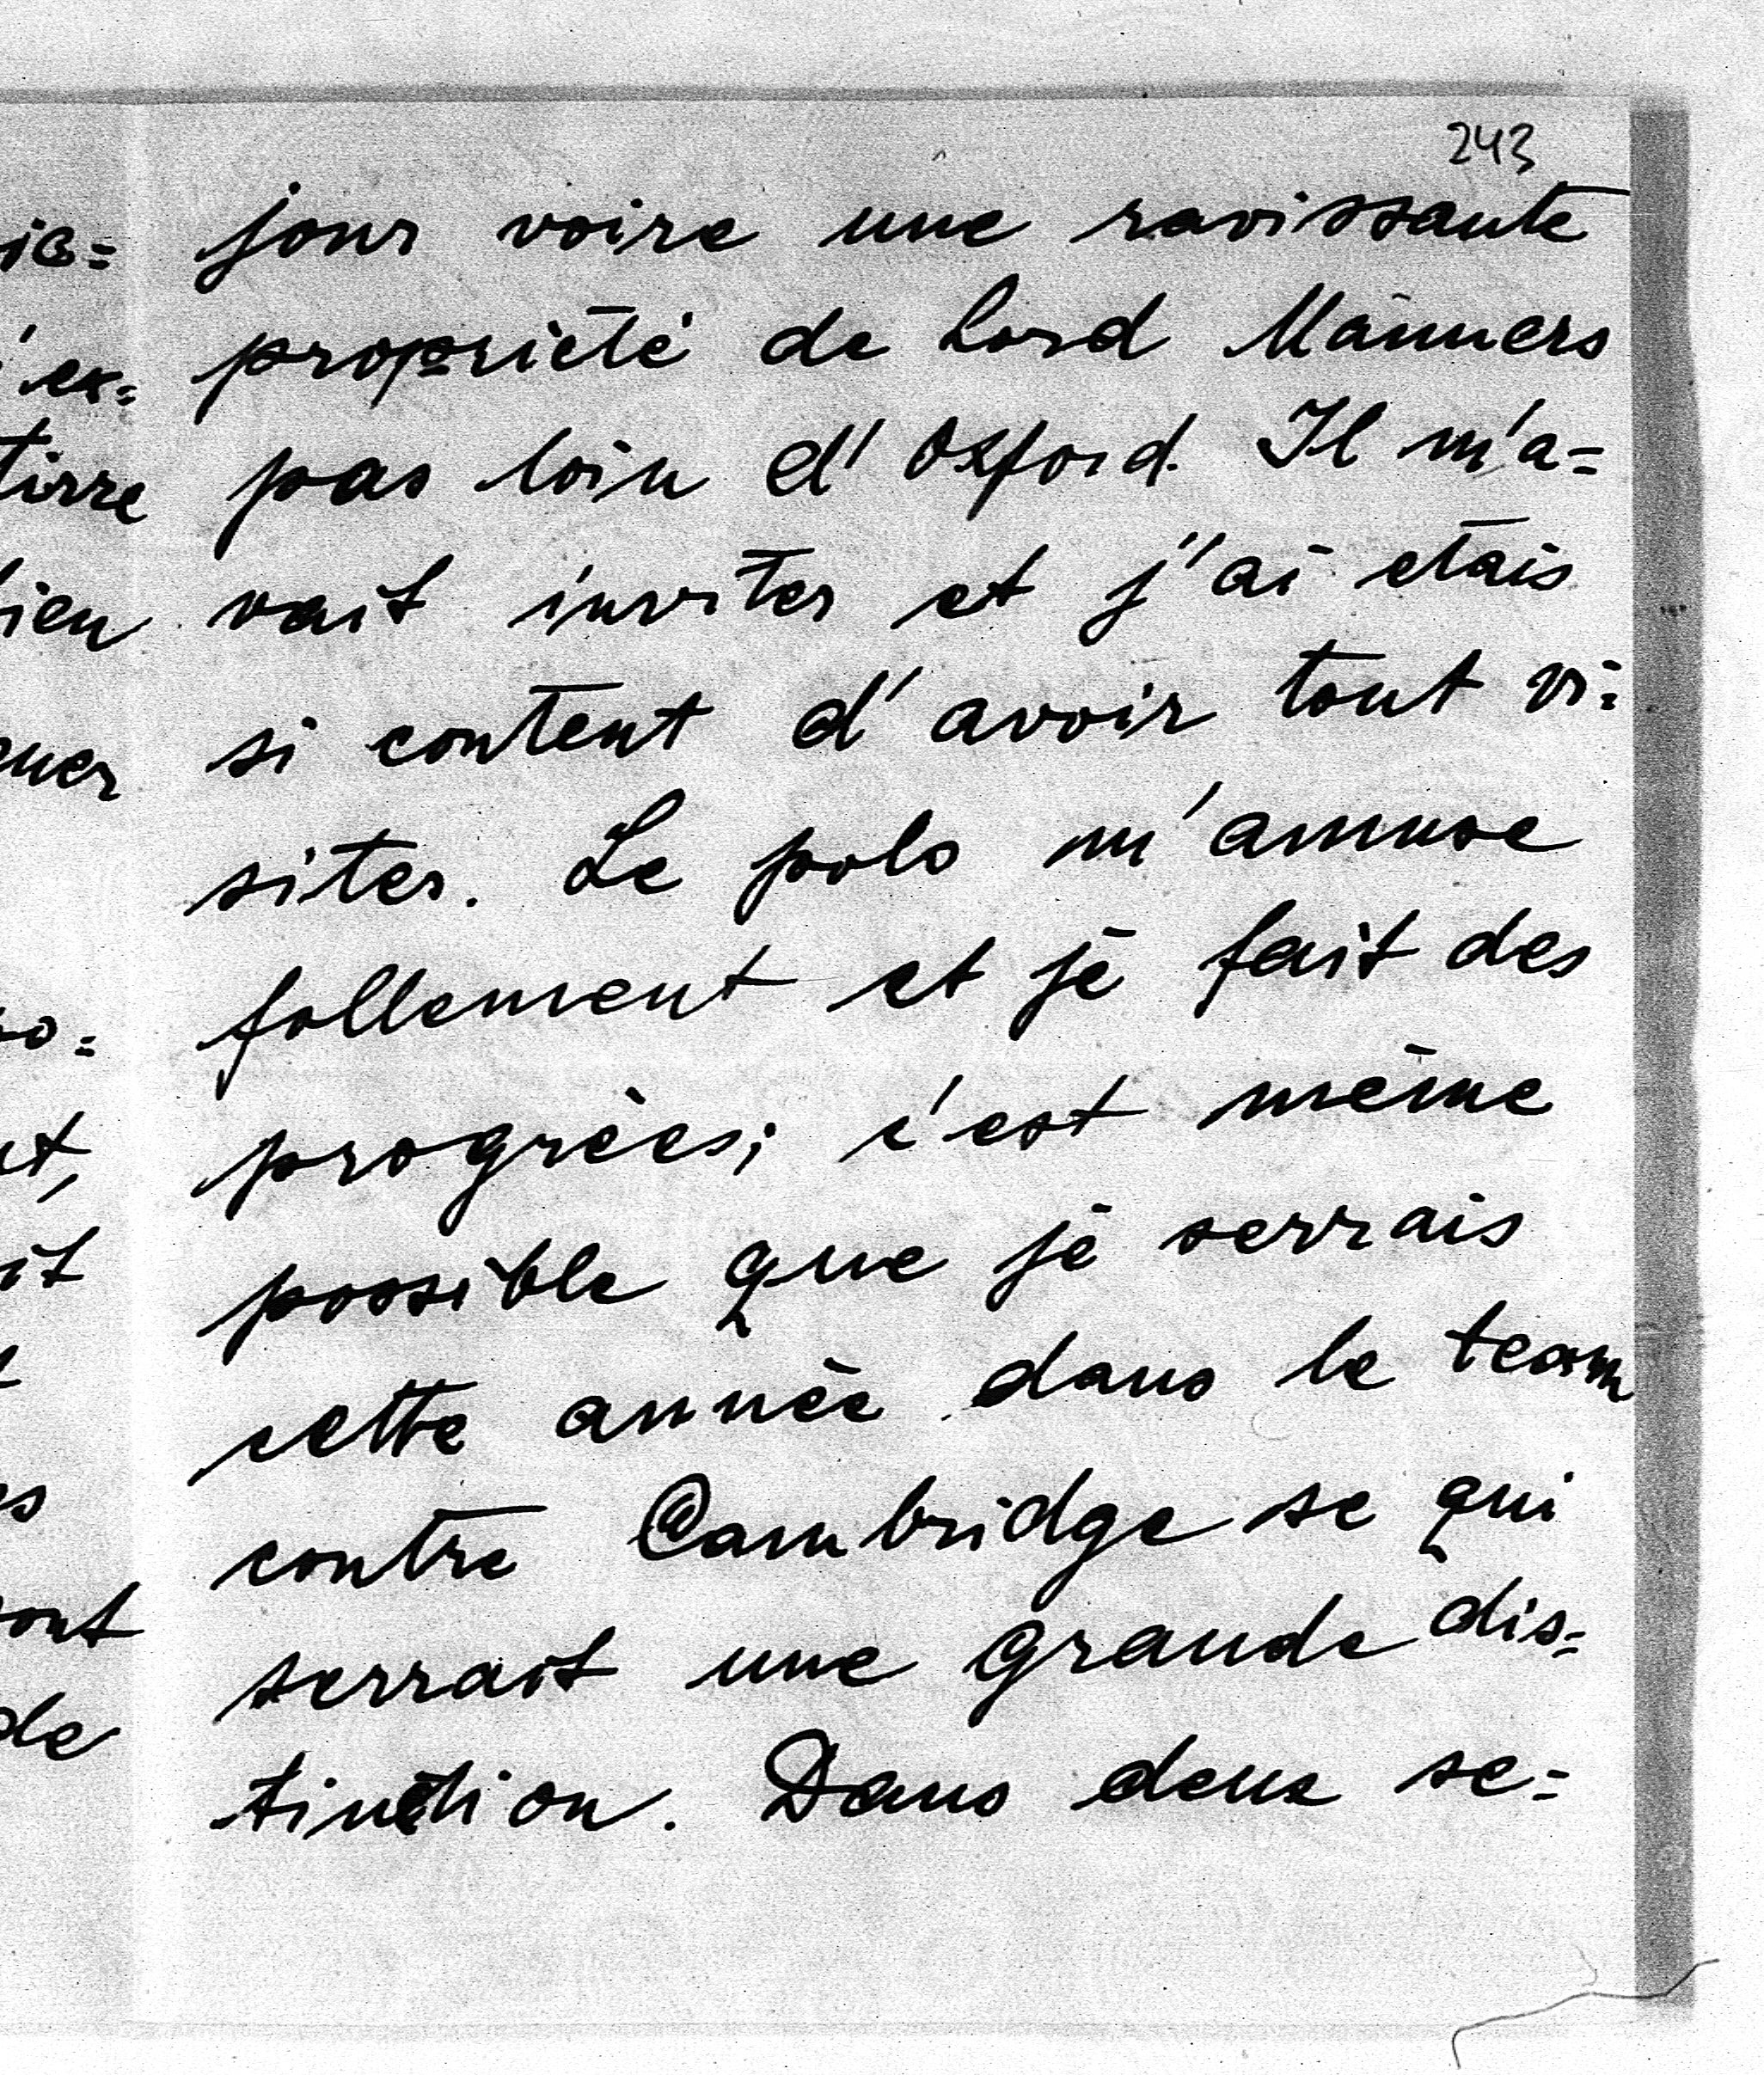 243
jour voire une ravissante
propriété de Lord Manners
pas loin d'Oxford. Il m'a=
vait inviter et j'ai etais
si content d'avoir tout vi=
siter. Le polo m'amuse
follement et je fait des
progrèes; c'est même
possible que je serrais
cette année dans le team
contre Cambridge se qui
serrait une grande dis=
tinction. Dans deux se=